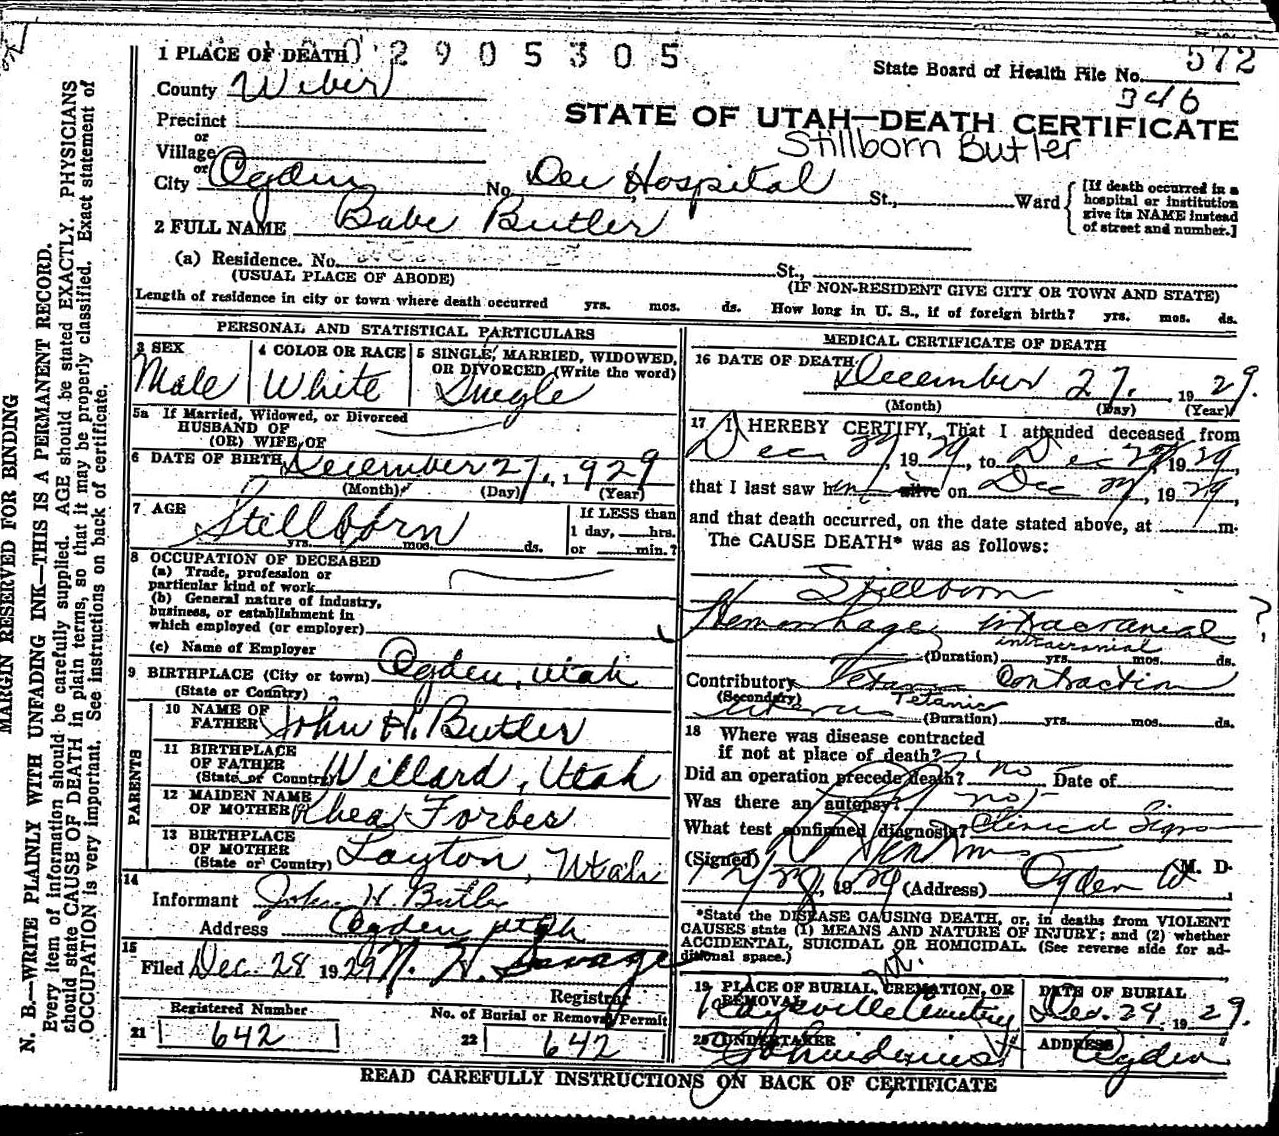 1 PLACE OF DEATH 02905305 572
State Board of Health File No.
County Weber 346
Precinct
STATE OF UTAH—DEATH CERTIFICATE
or
Village
Stillborn Butler
or
City Ogden No. Dee Hospital St., Ward [If death occurred in a hospital or institution give its NAME instead of street and number.]
2 FULL NAME Babe Butler
(a) Residence. No. St.,
(USUAL PLACE OF ABODE) (IF NON-RESIDENT GIVE CITY OR TOWN AND STATE)
Length of residence in city or town where death occurred yrs. mos. ds. How long in U. S., if of foreign birth? yrs. mos. ds.
PERSONAL AND STATISTICAL PARTICULARS
3 SEX 4 COLOR OR RACE 5 SINGLE, MARRIED, WIDOWED,
OR DIVORCED (Write the word)
Male White Single
5a If Married, Widowed, or Divorced
HUSBAND OF
(OR) WIFE OF
6 DATE OF BIRTH December 27, 1929
(Month) (Day) (Year)
7 AGE Stillborn
yrs. mos. ds.
If LESS than
1 day, hrs.
or min.?
8 OCCUPATION OF DECEASED
(a) Trade, profession or
particular kind of work
(b) General nature of industry,
business, or establishment in
which employed (or employer)
(c) Name of Employer
9 BIRTHPLACE (City or town) Ogden, Utah
(State or Country)
PARENTS
10 NAME OF
FATHER John H. Butler
11 BIRTHPLACE
OF FATHER
(State or Country) Willard, Utah
12 MAIDEN NAME
OF MOTHER Rhea Forbes
13 BIRTHPLACE
OF MOTHER
(State or Country) Layton, Utah
14
Informant John H. Butler
Address Ogden Utah
15
Filed Dec. 28 1929 N. H. Savage
Registrar
Registered Number No. of Burial or Removal Permit
21 642 22 642
MEDICAL CERTIFICATE OF DEATH
16 DATE OF DEATH December 27, 1929.
(Month) (Day) (Year)
17 I HEREBY CERTIFY, That I attended deceased from
Dec 27, 1929, to Dec 27, 1929,
that I last saw h alive on Dec 27, 1929,
and that death occurred, on the date stated above, at m.
The CAUSE DEATH* was as follows:
Stillborn
Hemorhage intracranial ?
intracranial
(Duration) yrs. mos. ds.
Contributory Tetanic Contraction
(Secondary) Tetanic
uterus (Duration) yrs. mos. ds.
18 Where was disease contracted
if not at place of death?
Did an operation precede death? no Date of
Was there an autopsy? no
What test confirmed diagnosis? Clinical Signs
(Signed) M. D.
12/28, 1929 (Address) Ogden U
*State the DISEASE CAUSING DEATH, or, in deaths from VIOLENT
CAUSES state (1) MEANS AND NATURE OF INJURY; and (2) whether
ACCIDENTAL, SUICIDAL OR HOMICIDAL. (See reverse side for ad-
ditional space.)
19 PLACE OF BURIAL, CREMATION, OR
REMOVAL
Kaysville Cemetery Ut.
DATE OF BURIAL
Dec. 29, 1929.
20 UNDERTAKER
ADDRESS Ogden
READ CAREFULLY INSTRUCTIONS ON BACK OF CERTIFICATE
MARGIN RESERVED FOR BINDING
N. B.—WRITE PLAINLY WITH UNFADING INK—THIS IS A PERMANENT RECORD.
Every item of information should be carefully supplied. AGE should be stated EXACTLY. PHYSICIANS
should state CAUSE OF DEATH in plain terms, so that it may be properly classified. Exact statement of
OCCUPATION is very important. See instructions on back of certificate.